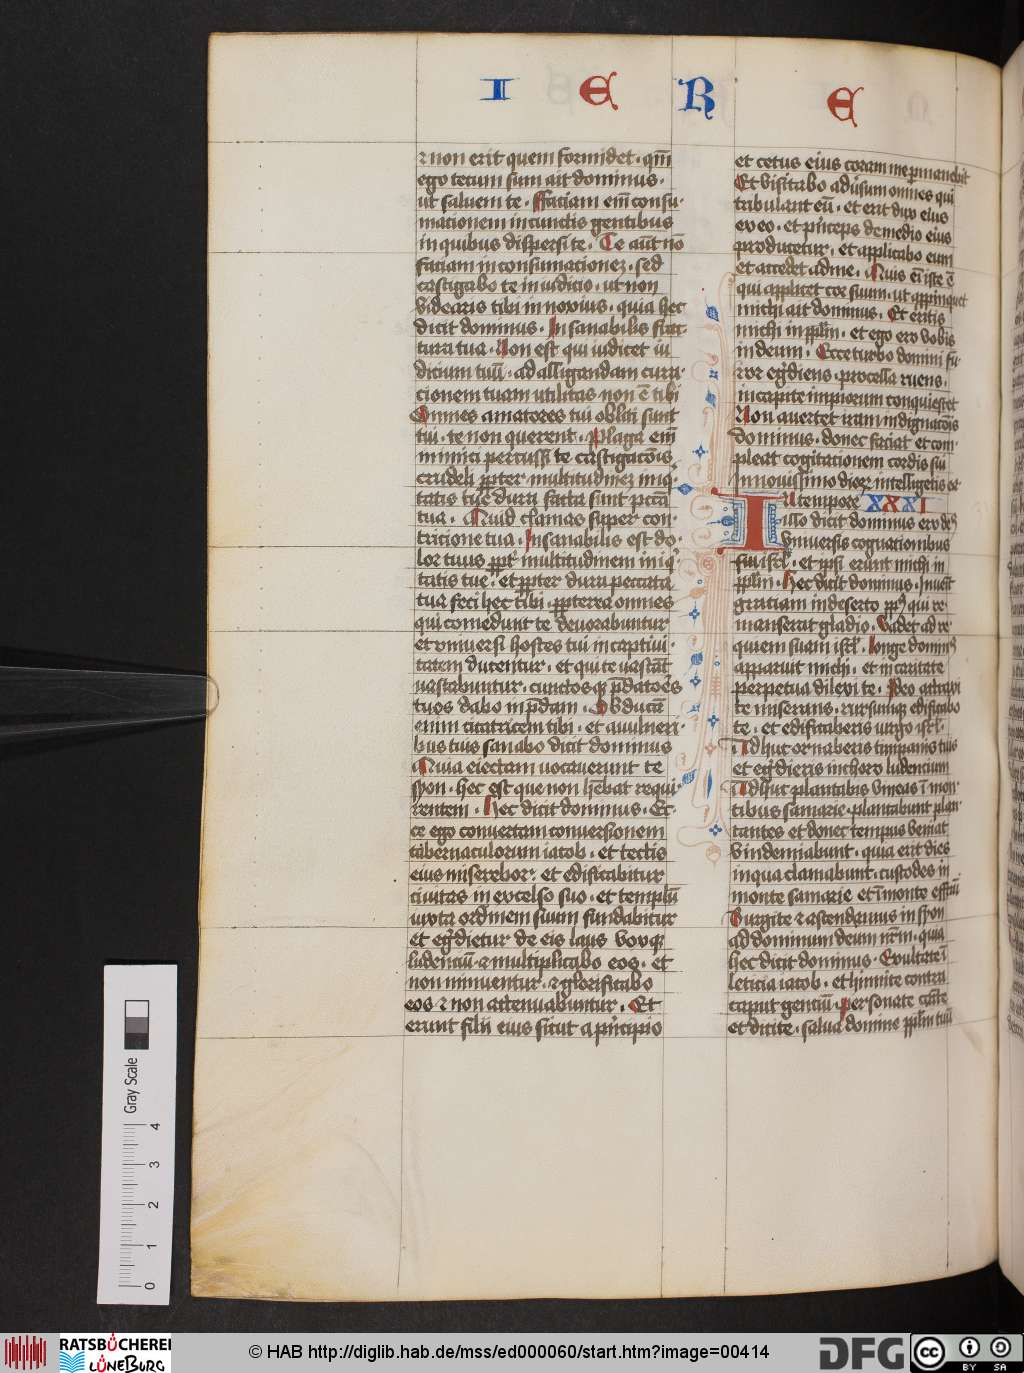 I E R E
⁊ non erit quem formidet · qm̄
ego tecum sum ait dominus ·
ut saluem te · Faciam em̄ consu
mationem in cunctis gentibus
in quibus dispersi te · Te aūt nō
faciam in consumationez · sed
castigabo te in iudicio · ut non
videaris tibi innoxius · quia hec
dicit dominus · Insanabilis frac
tura tua · Non est qui iudicet iu
dicium tuū · ad alligandam cura
cionem tuam utilitas non ē tibi
Omnes amatores tui obliti sunt
tui · te non querent · Plaga em̄
inimici percussi te castigacōis
crudeli ꝓpter multitudinez iniq̇
tatis tue dura facta sunt pctā
tua · Quid clamas super con
tricione tua · Insanabilis est do
lor tuus ꝓpt̓ multitudinem iniq̇
tatis tue · et ꝓpter dura peccata
tua feci hec tibi · ꝓpterea omnes
qui comedunt te deuorabuntur
et vniuersi hostes tui in captiui
tatem ducentur · et qui te uastāt
uastabuntur · cunctos q̄ p̄datores
tuos dabo in p̄dam · Obducā
enim cicatricem tibi · et a vulneri
bus tuis sanabo dicit dominus
Quia eiectam uocauerunt te
syon · hec est que non hēbat requi
rentem · Hec dicit dominus · Ec
ce ego conuertam conuersionem
tabernaculorum iacob · et tectis
eius miserebor · et edificabitur
ciuitas in excelso suo · et templū
iuxta ordinem suum fundabitur
et eg̓dietur de eis laus voxq̄
ludenciū · ⁊ multiplicabo eos · et
non minuentur · ⁊ glorificabo
eos ⁊ non attenuabuntur · Et
erunt filii eius sicut a p̓ncipio
et cetus eius coram me permanebit
Et visitabo aduersum omnes qui
tribulant eū · et erit dux eius
ex eo · et p̓nceps de medio eius
producetur · et applicabo eum
et accedet ad me · Quis ei iste ē
qui applicet cor suum · ut apꝓpinquet
michi ait dominus · Et eritis
michi in pp̄lm · et ego ero vobis
in deum · Ecce turbo domini fu
ror eg̓diens · procella ruens ·
in capite impiorum conquiescet
Non auertet iram indignacōis
dominus · donec faciat et com
pleat cogitationem cordis sui
In nouissimo dierz intelligetis ea
In tempore XXXI
illo dicit dominus ero deꝰ
vniuersis cognationibus
filii isr̄l · et ipsi erunt michi in
pp̄lm · Hec dicit dominus · Inuēit
gratiam in deserto pp̄lꝰ qui re
manserat gladio · Vadet ad re
quiem suam isr̄l · Longe dominꝰ
apparuit michi · et in caritate
perpetua dilexi te · Ideo attraxi
te miserans · rursumq̄ edificabo
te · et edificaberis uirgo isr̄l ·
Adhuc ornaberis timpanis tuis
et eg̓dieris in choro ludencium
Adhuc plantabis vineas ī mon
tibus samarie · plantabunt plan
tantes et donec tempus veniat
vindemiabunt · quia erit dies
in qua clamabunt · custodes in
monte samarie et ī monte effraī
Surgite ⁊ ascendamus in syon
ad dominum deum nr̄m · quia
hec dicit dominus · Exultate ī
leticia iacob · et hinnite contra
caput gentiū · personate cāite
et dicite · salua domine pp̄lm tuū
Gray Scale
0 1 2 3 4
RATSBÜCHEREI
LÜNEBURG
© HAB http://diglib.hab.de/mss/ed000060/start.htm?image=00414
DFG
cc BY SA